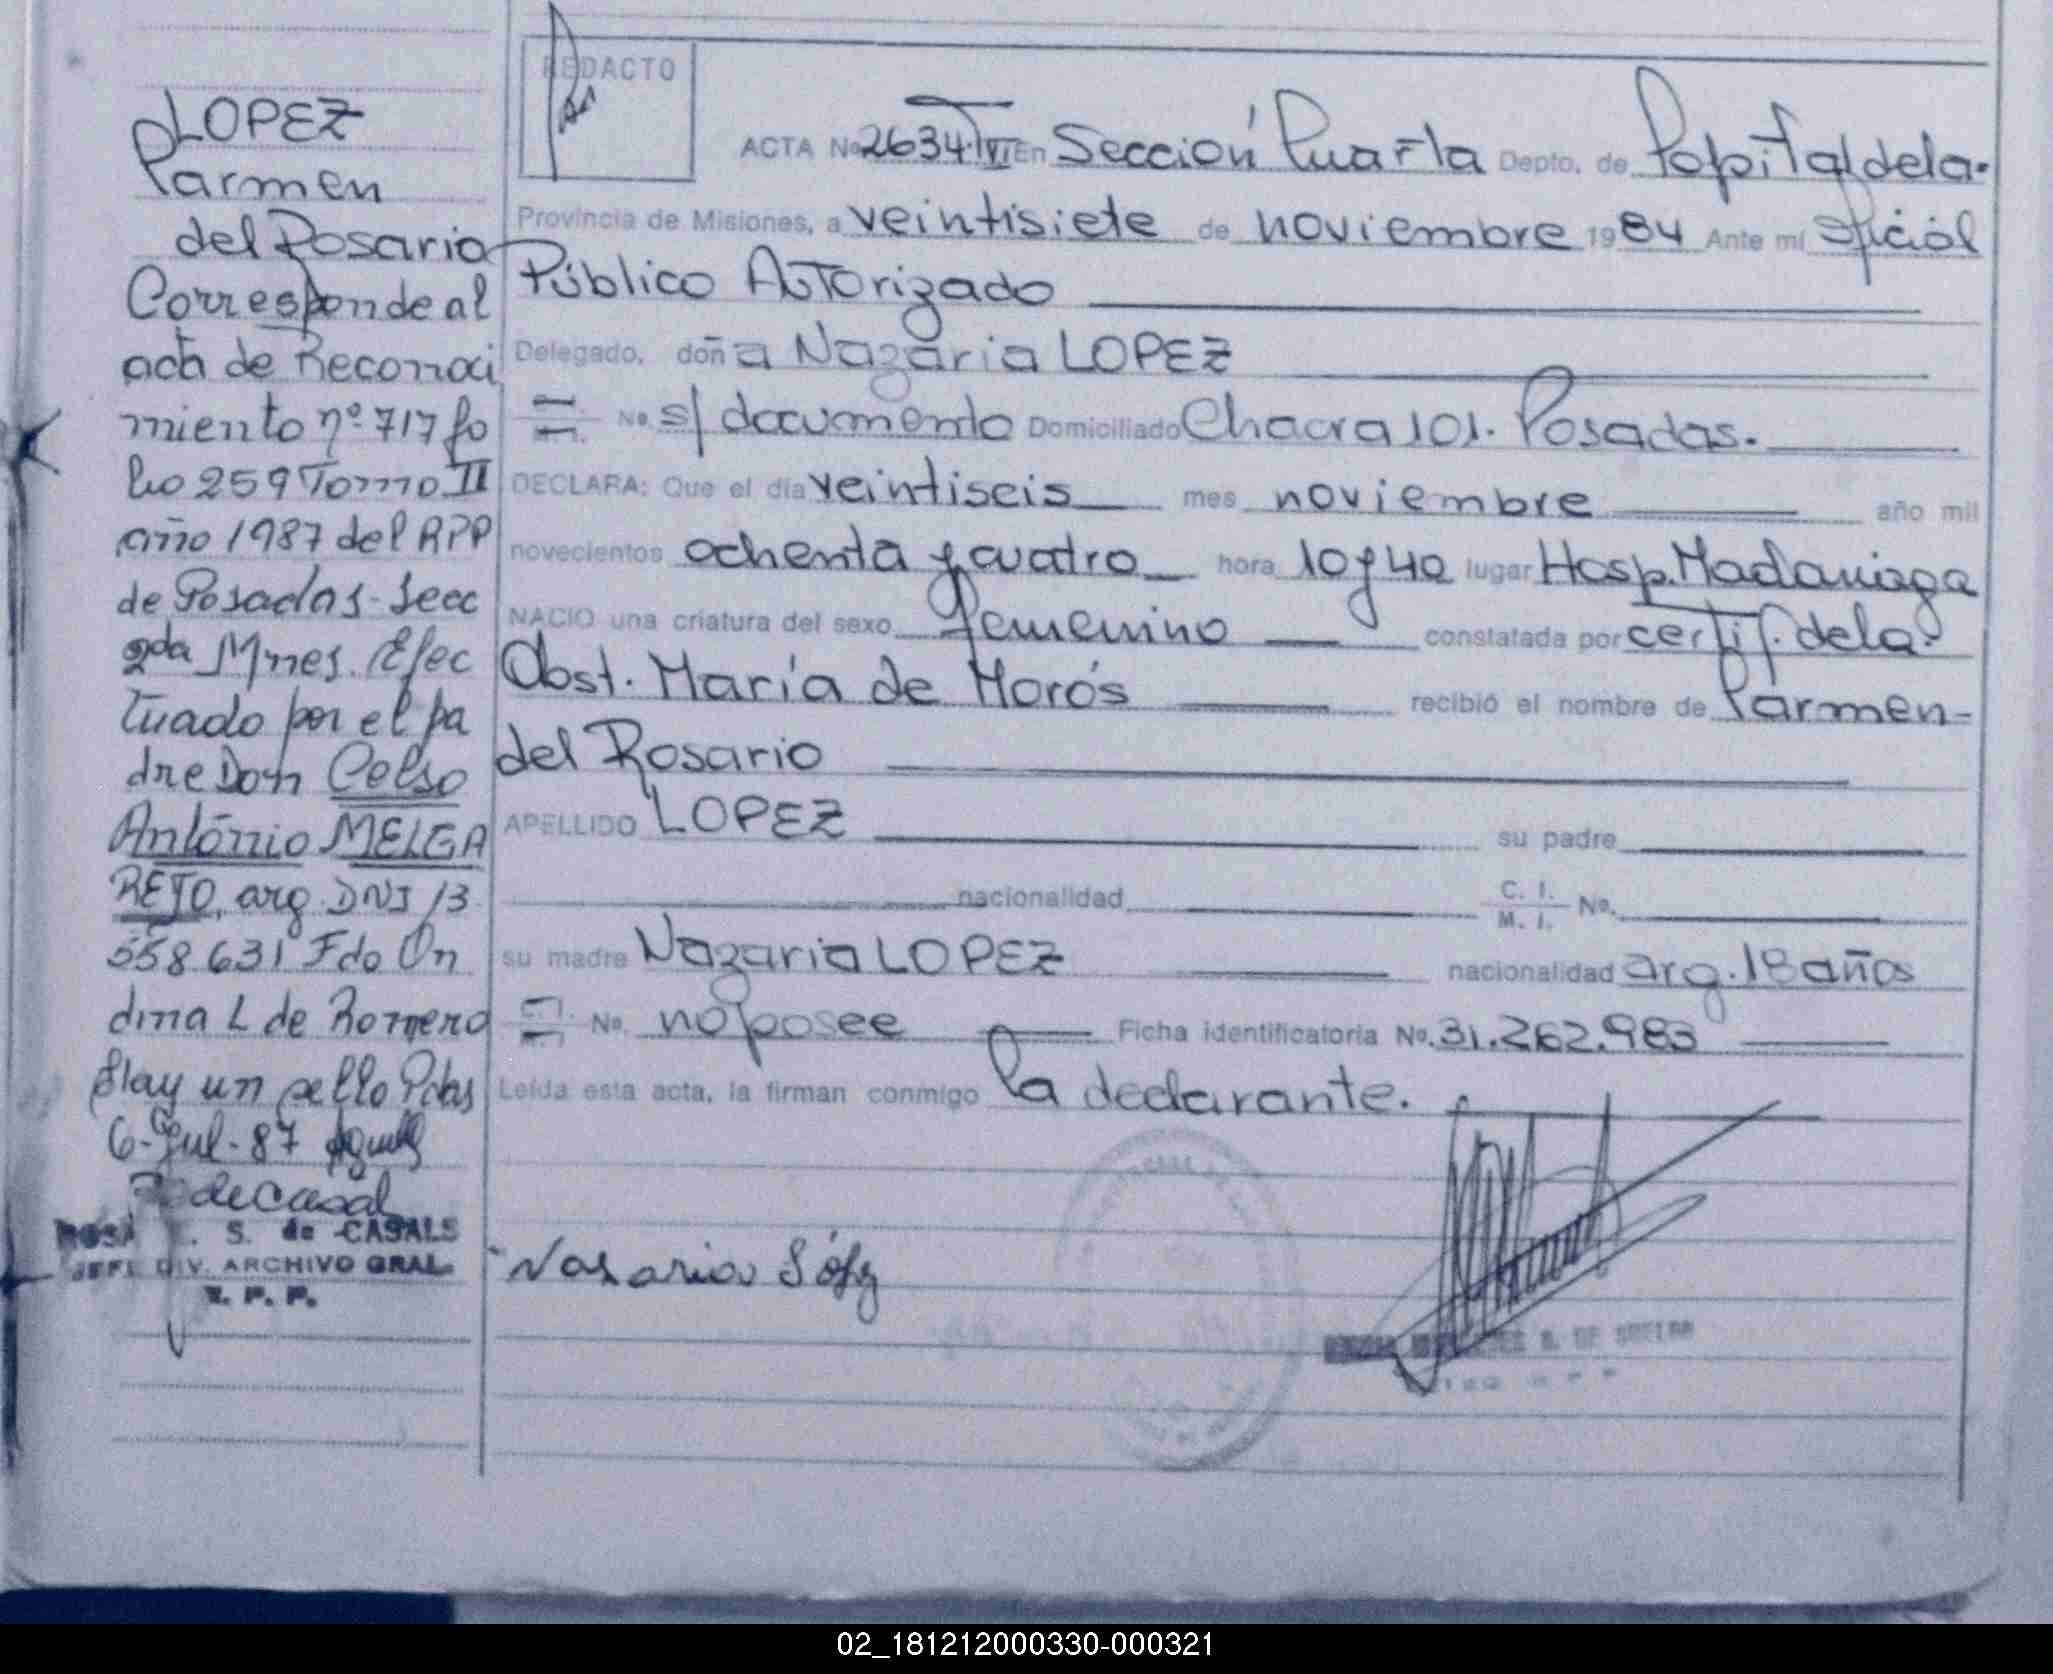 LOPEZ
Carmen
del Rosario
Corresponde al
acta de Reconoci
miento nº 717 fo
lio 259 Tomo II
año 1987 del RPP
de Posadas-Secc
2da Mnes. Efec
tuado por el pa
dre Don Celso
Antonio MELGA
REJO, arg. DNI 13
558 631 Fdo On
dina L de Romero
Hay un sello Pdas
6-Jul-87
de Casal
ROSA . S. de CASALS
JEFE DIV. ARCHIVO GRAL.
R. P. P.
REDACTO
ACTA No 2634 T VI En Sección Cuarta Depto. de Capital dela-
Provincia de Misiones, a veintisiete de noviembre 1984 Ante mí oficial
Público Autorizado
Delegado, doña Nazaria LOPEZ
No. s/documento Domiciliado Chacra 101. Posadas.
DECLARA: Que el día veintiseis mes noviembre año mil
novecientos ochenta y cuatro hora 10 y 40 lugar Hosp. Madariaga
NACIO una criatura del sexo femenino constatada por certif. dela-
Obst. María de Morós recibió el nombre de Carmen-
del Rosario
APELLIDO LOPEZ su padre
nacionalidad C. I. M. I. No.
su madre Nazaria LOPEZ nacionalidad arg. 18 años
C. I. M. I. No. no posee Ficha identificatoria No. 31.262.983
Leída esta acta, la firman conmigo la declarante.
Nasaria López
02_181212000330-000321